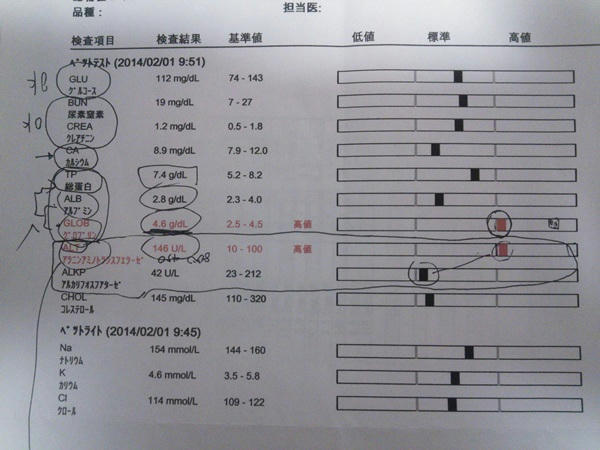 品種：
担当医:
検査項目 検査結果 基準値 低値 標準 高値
ﾍﾞｸﾄﾃｽﾄ (2014/02/01 9:51)
GLU 112 mg/dL 74 - 143
ｸﾞﾙｺｰｽ
BUN 19 mg/dL 7 - 27
尿素窒素
CREA 1.2 mg/dL 0.5 - 1.8
ｸﾚｱﾁﾆﾝ
CA 8.9 mg/dL 7.9 - 12.0
ｶﾙｼｳﾑ
TP 7.4 g/dL 5.2 - 8.2
総蛋白
ALB 2.8 g/dL 2.3 - 4.0
ｱﾙﾌﾞﾐﾝ
GLOB 4.6 g/dL 2.5 - 4.5 高値
ｸﾞﾛﾌﾞﾘﾝ
ALT 146 U/L 10 - 100 高値
ｱﾗﾆﾝｱﾐﾉﾄﾗﾝｽﾌｪﾗｰｾﾞ
ALKP 42 U/L 23 - 212
ｱﾙｶﾘﾌｫｽﾌｧﾀｰｾﾞ
CHOL 145 mg/dL 110 - 320
ｺﾚｽﾃﾛｰﾙ
ﾍﾞｸﾄﾗｲﾄ (2014/02/01 9:45)
Na 154 mmol/L 144 - 160
ﾅﾄﾘｳﾑ
K 4.6 mmol/L 3.5 - 5.8
ｶﾘｳﾑ
Cl 114 mmol/L 109 - 122
ｸﾛｰﾙ